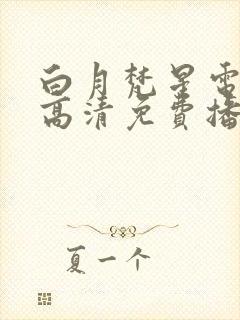 白月梵星电
高清免費播
夏一个